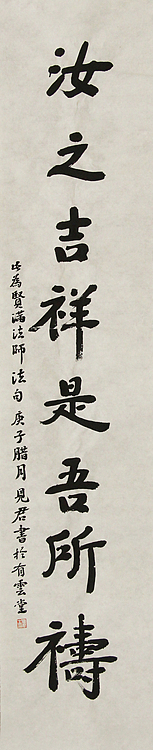 汝之吉祥是吾所禱
此為賢滿法師法句 庚子腊月見君書於有雲堂